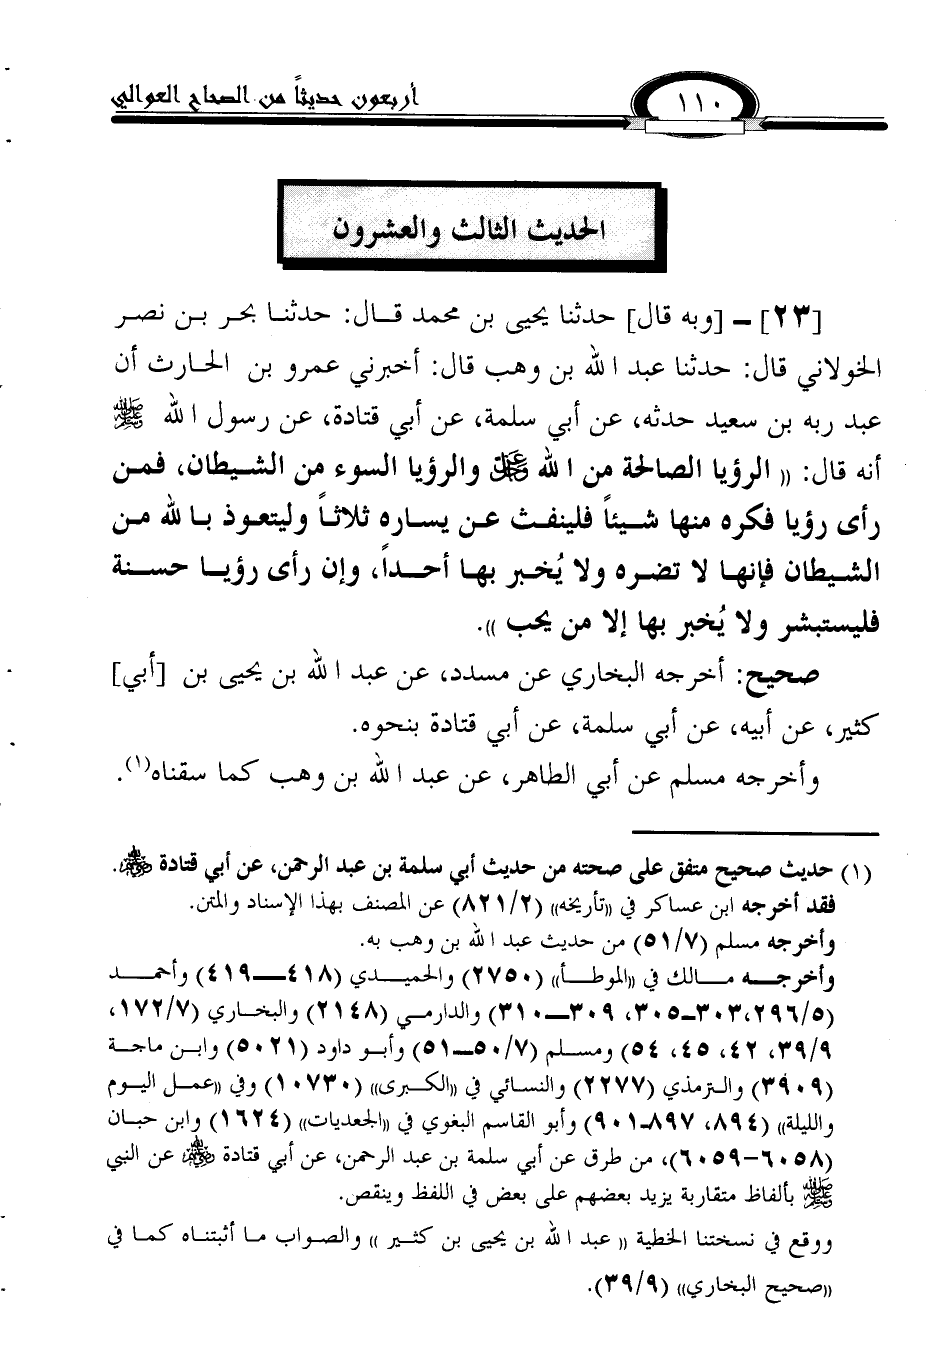 ١١٠
أربعون حديثاً من الصحاح العوالي
الحديث الثالث والعشرون
[٢٣] – [وبه قال] حدثنا يحيى بن محمد قال: حدثنا بحر بن نصر
الخولاني قال: حدثنا عبد الله بن وهب قال: أخبرني عمرو بن الحارث أن
عبد ربه بن سعيد حدثه، عن أبي سلمة، عن أبي قتادة، عن رسول الله ﷺ
أنه قال: (( الرؤيا الصالحة من الله ﷻ والرؤيا السوء من الشيطان، فمن
رأى رؤيا فكره منها شيئاً فلينفث عن يساره ثلاثاً وليتعوذ بالله من
الشيطان فإنها لا تضره ولا يُخبر بها أحداً، وإن رأى رؤيا حسنة
فليستبشر ولا يُخبر بها إلا من يحب )).
صحيح: أخرجه البخاري عن مسدد، عن عبد الله بن يحيى بن [أبي]
كثير، عن أبيه، عن أبي سلمة، عن أبي قتادة بنحوه.
وأخرجه مسلم عن أبي الطاهر، عن عبد الله بن وهب كما سقناه(١).
(١) حديث صحيح متفق على صحته من حديث أبي سلمة بن عبد الرحمن، عن أبي قتادة ﵁.
فقد أخرجه ابن عساكر في ((تأريخه)) (٨٢١/٢) عن المصنف بهذا الإسناد والمتن.
وأخرجه مسلم (٥١/٧) من حديث عبد الله بن وهب به.
وأخرجه مالك في ((الموطأ)) (٢٧٥٠) والحميدي (٤١٨–٤١٩) وأحمد
(٢٩٦/٥،٣٠٣–٣٠٥، ٣٠٩–٣١٠) والدارمي (٢١٤٨) والبخاري (١٧٢/٧،
٣٩/٩، ٤٢، ٤٥، ٥٤) ومسلم (٥٠/٧–٥١) وأبو داود (٥٠٢١) وابن ماجة
(٣٩٠٩) والترمذي (٢٢٧٧) والنسائي في ((الكبرى)) (١٠٧٣٠) وفي ((عمل اليوم
والليلة)) (٨٩٤، ٨٩٧–٩٠١) وأبو القاسم البغوي في ((الجعديات)) (١٦٢٤) وابن حبان
(٦٠٥٨–٦٠٥٩)، من طرق عن أبي سلمة بن عبد الرحمن، عن أبي قتادة ﵁ عن النبي
ﷺ بألفاظ متقاربة يزيد بعضهم على بعض في اللفظ وينقص.
ووقع في نسختنا الخطية (( عبد الله بن يحيى بن كثير )) والصواب ما أثبتناه كما في
((صحيح البخاري)) (٣٩/٩).